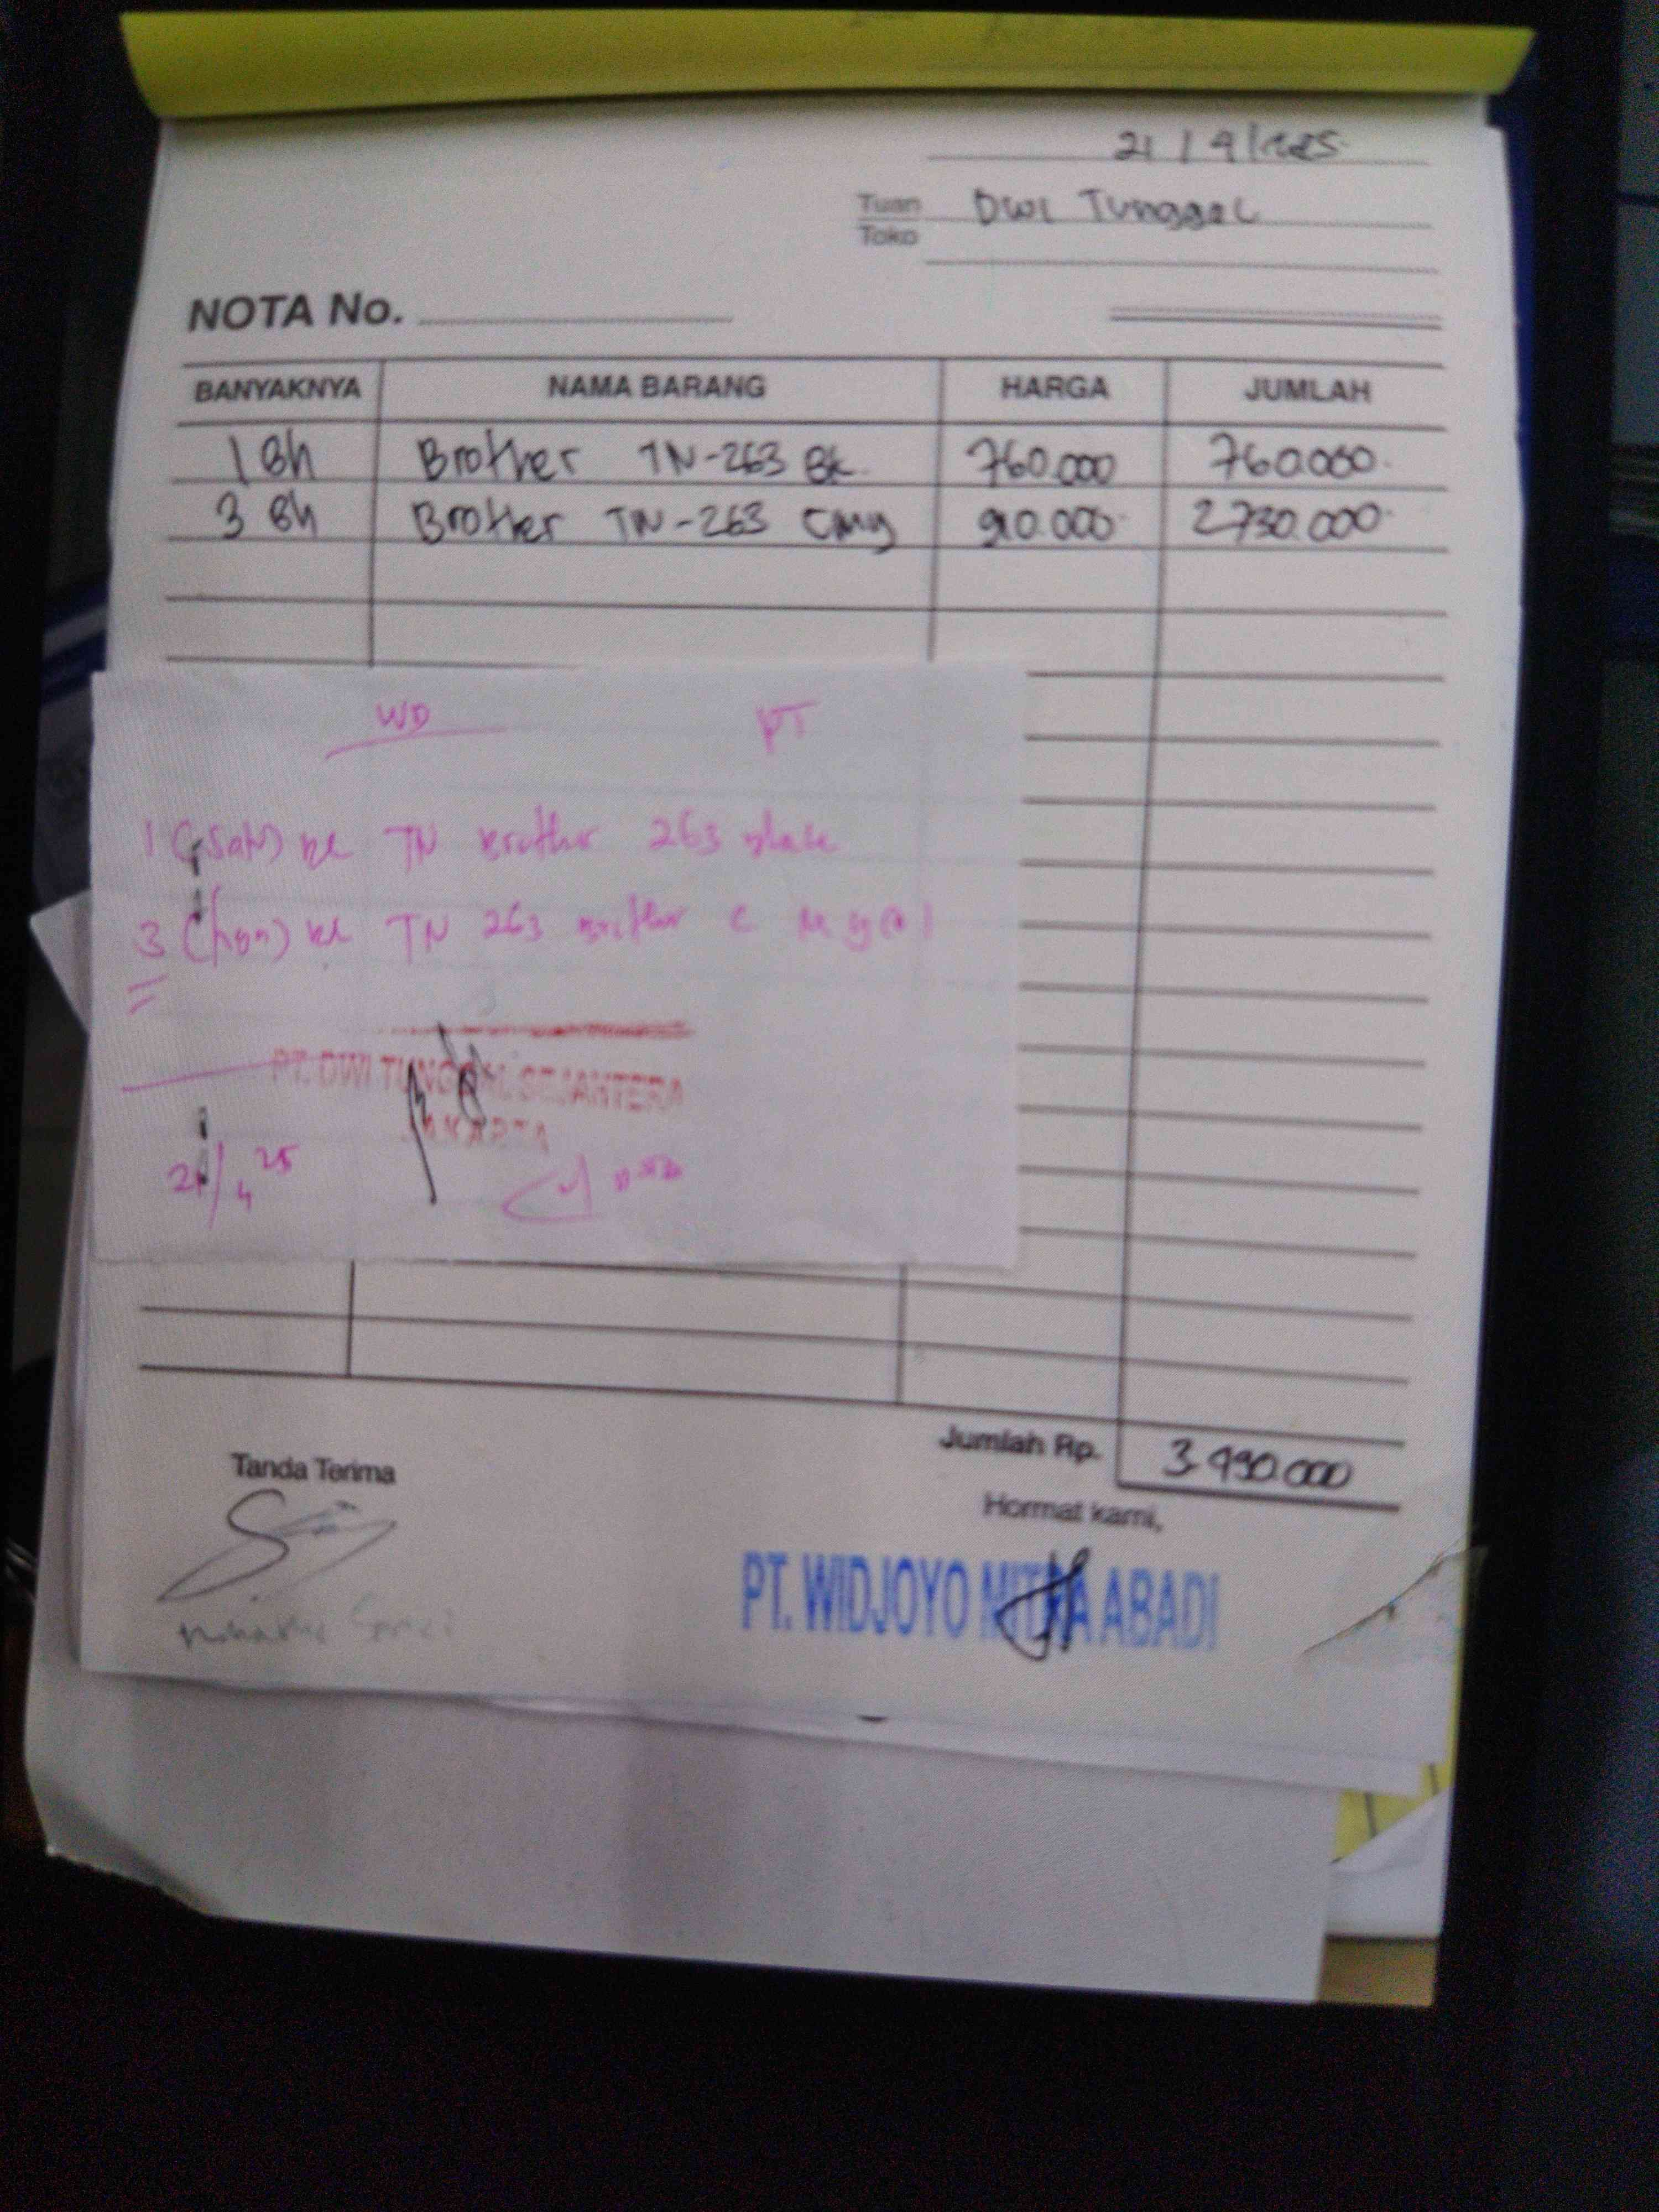 21/4/2025
Tuan
Toko
Dwi Tunggal
NOTA No.
BANYAKNYA NAMA BARANG HARGA JUMLAH
1 Bh Brother TN-263 Bk 760.000 760.000
3 Bh Brother TN-263 Cmy 910.000 2.730.000
WD PT
1 (Satu) TN Brother 263 black
3 TN 263 Brother C M y
PT. DWI TUNGGAL SEJAHTERA
JAKARTA
21/4 25
Jumlah Rp. 3.490.000
Tanda Terima
Hormat kami,
PT. WIDJOYO MITRA ABADI